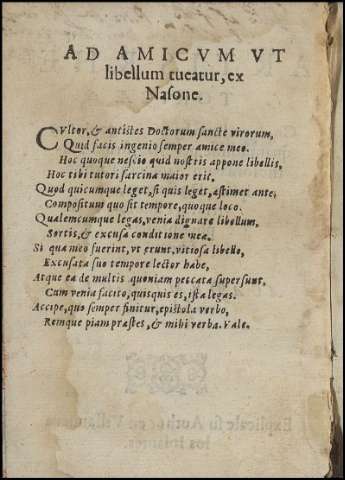 AD AMICVM VT
libellum tueatur, ex
Naſone.
CVltor, & antiſtes Doctorum ſancte virorum,
Quid facis ingenio ſemper amice meo.
Hoc quoque neſcio quid noſtris appone libellis,
Hoc tibi tutori ſarcina maior erit.
Quod quicumque leget, ſi quis leget, æſtimet ante,
Compoſitum quo ſit tempore, quoque loco.
Qualemcumque legas, venia dignare libellum,
Sortis, & excuſa conditione mea.
Si qua meo fuerint, vt erunt, vitioſa libello,
Excuſata ſuo tempore lector habe,
Atque ea de multis quoniam peccata ſuperſunt,
Cum venia facito, quiſquis es, iſta legas.
Accipe, quo ſemper finitur, epiſtola verbo,
Remque piam præſtes, & mihi verba. Vale.